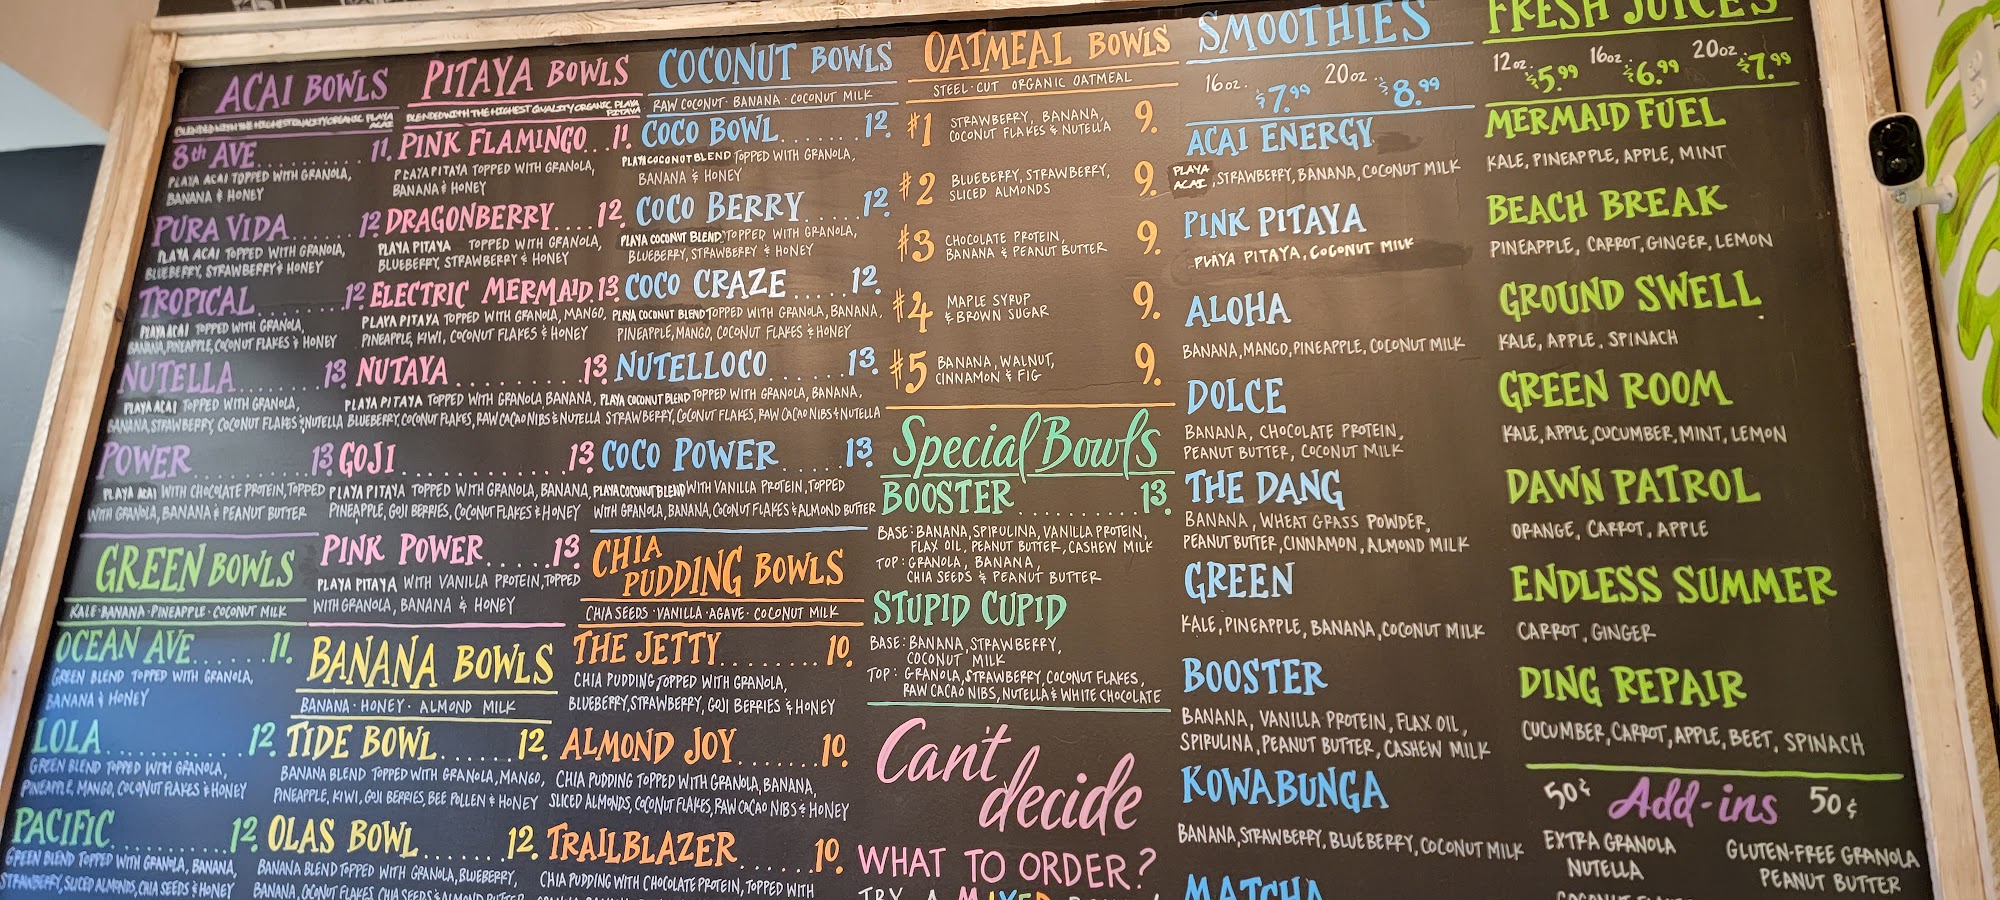 ACAI BOWLS
BLENDED WITH THE HIGHEST QUALITY ORGANIC PLAYA
ACAI
8th AVE.............11.
PLAYA ACAI TOPPED WITH GRANOLA,
BANANA & HONEY
PURA VIDA........12
PLAYA ACAI TOPPED WITH GRANOLA,
BLUEBERRY, STRAWBERRY & HONEY
TROPICAL..........12
PLAYA ACAI TOPPED WITH GRANOLA,
BANANA, PINEAPPLE, COCONUT FLAKES & HONEY
NUTELLA........13
PLAYA ACAI TOPPED WITH GRANOLA,
BANANA, STRAWBERRY, COCONUT FLAKES & NUTELLA
POWER...........13
PLAYA ACAI WITH CHOCOLATE PROTEIN, TOPPED
WITH GRANOLA, BANANA & PEANUT BUTTER
GREEN BOWLS
KALE · BANANA · PINEAPPLE · COCONUT MILK
OCEAN AVE......11.
GREEN BLEND TOPPED WITH GRANOLA,
BANANA & HONEY
LOLA.............12.
GREEN BLEND TOPPED WITH GRANOLA,
PINEAPPLE, MANGO, COCONUT FLAKES & HONEY
PACIFIC...........12.
GREEN BLEND TOPPED WITH GRANOLA, BANANA,
STRAWBERRY, SLICED ALMONDS, CHIA SEEDS & HONEY
PITAYA BOWLS
BLENDED WITH THE HIGHEST QUALITY ORGANIC PLAYA
PITAYA
PINK FLAMINGO...11.
PLAYA PITAYA TOPPED WITH GRANOLA,
BANANA & HONEY
DRAGONBERRY....12.
PLAYA PITAYA TOPPED WITH GRANOLA,
BLUEBERRY, STRAWBERRY & HONEY
ELECTRIC MERMAID.13
PLAYA PITAYA TOPPED WITH GRANOLA, MANGO,
PINEAPPLE, KIWI, COCONUT FLAKES & HONEY
NUTAYA...........13
PLAYA PITAYA TOPPED WITH GRANOLA BANANA,
BLUEBERRY, COCONUT FLAKES, RAW CACAO NIBS & NUTELLA
GOJI..............13
PLAYA PITAYA TOPPED WITH GRANOLA, BANANA,
PINEAPPLE, GOJI BERRIES, COCONUT FLAKES & HONEY
PINK POWER......13
PLAYA PITAYA WITH VANILLA PROTEIN, TOPPED
WITH GRANOLA, BANANA & HONEY
BANANA BOWLS
BANANA · HONEY · ALMOND MILK
TIDE BOWL.......12.
BANANA BLEND TOPPED WITH GRANOLA, MANGO,
PINEAPPLE, KIWI, GOJI BERRIES, BEE POLLEN & HONEY
OLAS BOWL.......12.
BANANA BLEND TOPPED WITH GRANOLA, BLUEBERRY,
BANANA, COCONUT FLAKES, CHIA SEEDS & ALMOND BUTTER
COCONUT BOWLS
RAW COCONUT · BANANA · COCONUT MILK
COCO BOWL.......12.
PLAYA COCONUT BLEND TOPPED WITH GRANOLA,
BANANA & HONEY
COCO BERRY.....12.
PLAYA COCONUT BLEND TOPPED WITH GRANOLA,
BLUEBERRY, STRAWBERRY & HONEY
COCO CRAZE.....12.
PLAYA COCONUT BLEND TOPPED WITH GRANOLA, BANANA,
PINEAPPLE, MANGO, COCONUT FLAKES & HONEY
NUTELLOCO.......13.
PLAYA COCONUT BLEND TOPPED WITH GRANOLA, BANANA,
STRAWBERRY, COCONUT FLAKES, RAW CACAO NIBS & NUTELLA
COCO POWER.....13.
PLAYA COCONUT BLEND WITH VANILLA PROTEIN, TOPPED
WITH GRANOLA, BANANA, COCONUT FLAKES & ALMOND BUTTER
CHIA
PUDDING BOWLS
CHIA SEEDS · VANILLA · AGAVE · COCONUT MILK
THE JETTY........10.
CHIA PUDDING TOPPED WITH GRANOLA,
BLUEBERRY, STRAWBERRY, GOJI BERRIES & HONEY
ALMOND JOY......10.
CHIA PUDDING TOPPED WITH GRANOLA, BANANA,
SLICED ALMONDS, COCONUT FLAKES, RAW CACAO NIBS & HONEY
TRAILBLAZER......10.
CHIA PUDDING WITH CHOCOLATE PROTEIN, TOPPED WITH
OATMEAL BOWLS
STEEL-CUT ORGANIC OATMEAL
#1 STRAWBERRY, BANANA, 9.
COCONUT FLAKES & NUTELLA
#2 BLUEBERRY, STRAWBERRY, 9.
SLICED ALMONDS
#3 CHOCOLATE PROTEIN, 9.
BANANA & PEANUT BUTTER
#4 MAPLE SYRUP 9.
& BROWN SUGAR
#5 BANANA, WALNUT, 9.
CINNAMON & FIG
Special Bowls
BOOSTER...........13.
BASE: BANANA, SPIRULINA, VANILLA PROTEIN,
FLAX OIL, PEANUT BUTTER, CASHEW MILK
TOP: GRANOLA, BANANA,
CHIA SEEDS & PEANUT BUTTER
STUPID CUPID
BASE: BANANA, STRAWBERRY,
COCONUT MILK
TOP: GRANOLA, STRAWBERRY, COCONUT FLAKES,
RAW CACAO NIBS, NUTELLA & WHITE CHOCOLATE
Can't
decide
WHAT TO ORDER?
TRY A MIXED
SMOOTHIES
16oz. $7.99 20oz. $8.99
ACAI ENERGY
PLAYA
ACAI, STRAWBERRY, BANANA, COCONUT MILK
PINK PITAYA
PLAYA PITAYA, COCONUT MILK
ALOHA
BANANA, MANGO, PINEAPPLE, COCONUT MILK
DOLCE
BANANA, CHOCOLATE PROTEIN,
PEANUT BUTTER, COCONUT MILK
THE DANG
BANANA, WHEAT GRASS POWDER,
PEANUT BUTTER, CINNAMON, ALMOND MILK
GREEN
KALE, PINEAPPLE, BANANA, COCONUT MILK
BOOSTER
BANANA, VANILLA PROTEIN, FLAX OIL,
SPIRULINA, PEANUT BUTTER, CASHEW MILK
KOWABUNGA
BANANA, STRAWBERRY, BLUEBERRY, COCONUT MILK
MATCHA
FRESH JUICES
12oz. $5.99 16oz. $6.99 20oz. $7.99
MERMAID FUEL
KALE, PINEAPPLE, APPLE, MINT
BEACH BREAK
PINEAPPLE, CARROT, GINGER, LEMON
GROUND SWELL
KALE, APPLE, SPINACH
GREEN ROOM
KALE, APPLE, CUCUMBER, MINT, LEMON
DAWN PATROL
ORANGE, CARROT, APPLE
ENDLESS SUMMER
CARROT, GINGER
DING REPAIR
CUCUMBER, CARROT, APPLE, BEET, SPINACH
50¢ Add-ins 50¢
EXTRA GRANOLA
NUTELLA
GLUTEN-FREE GRANOLA
PEANUT BUTTER